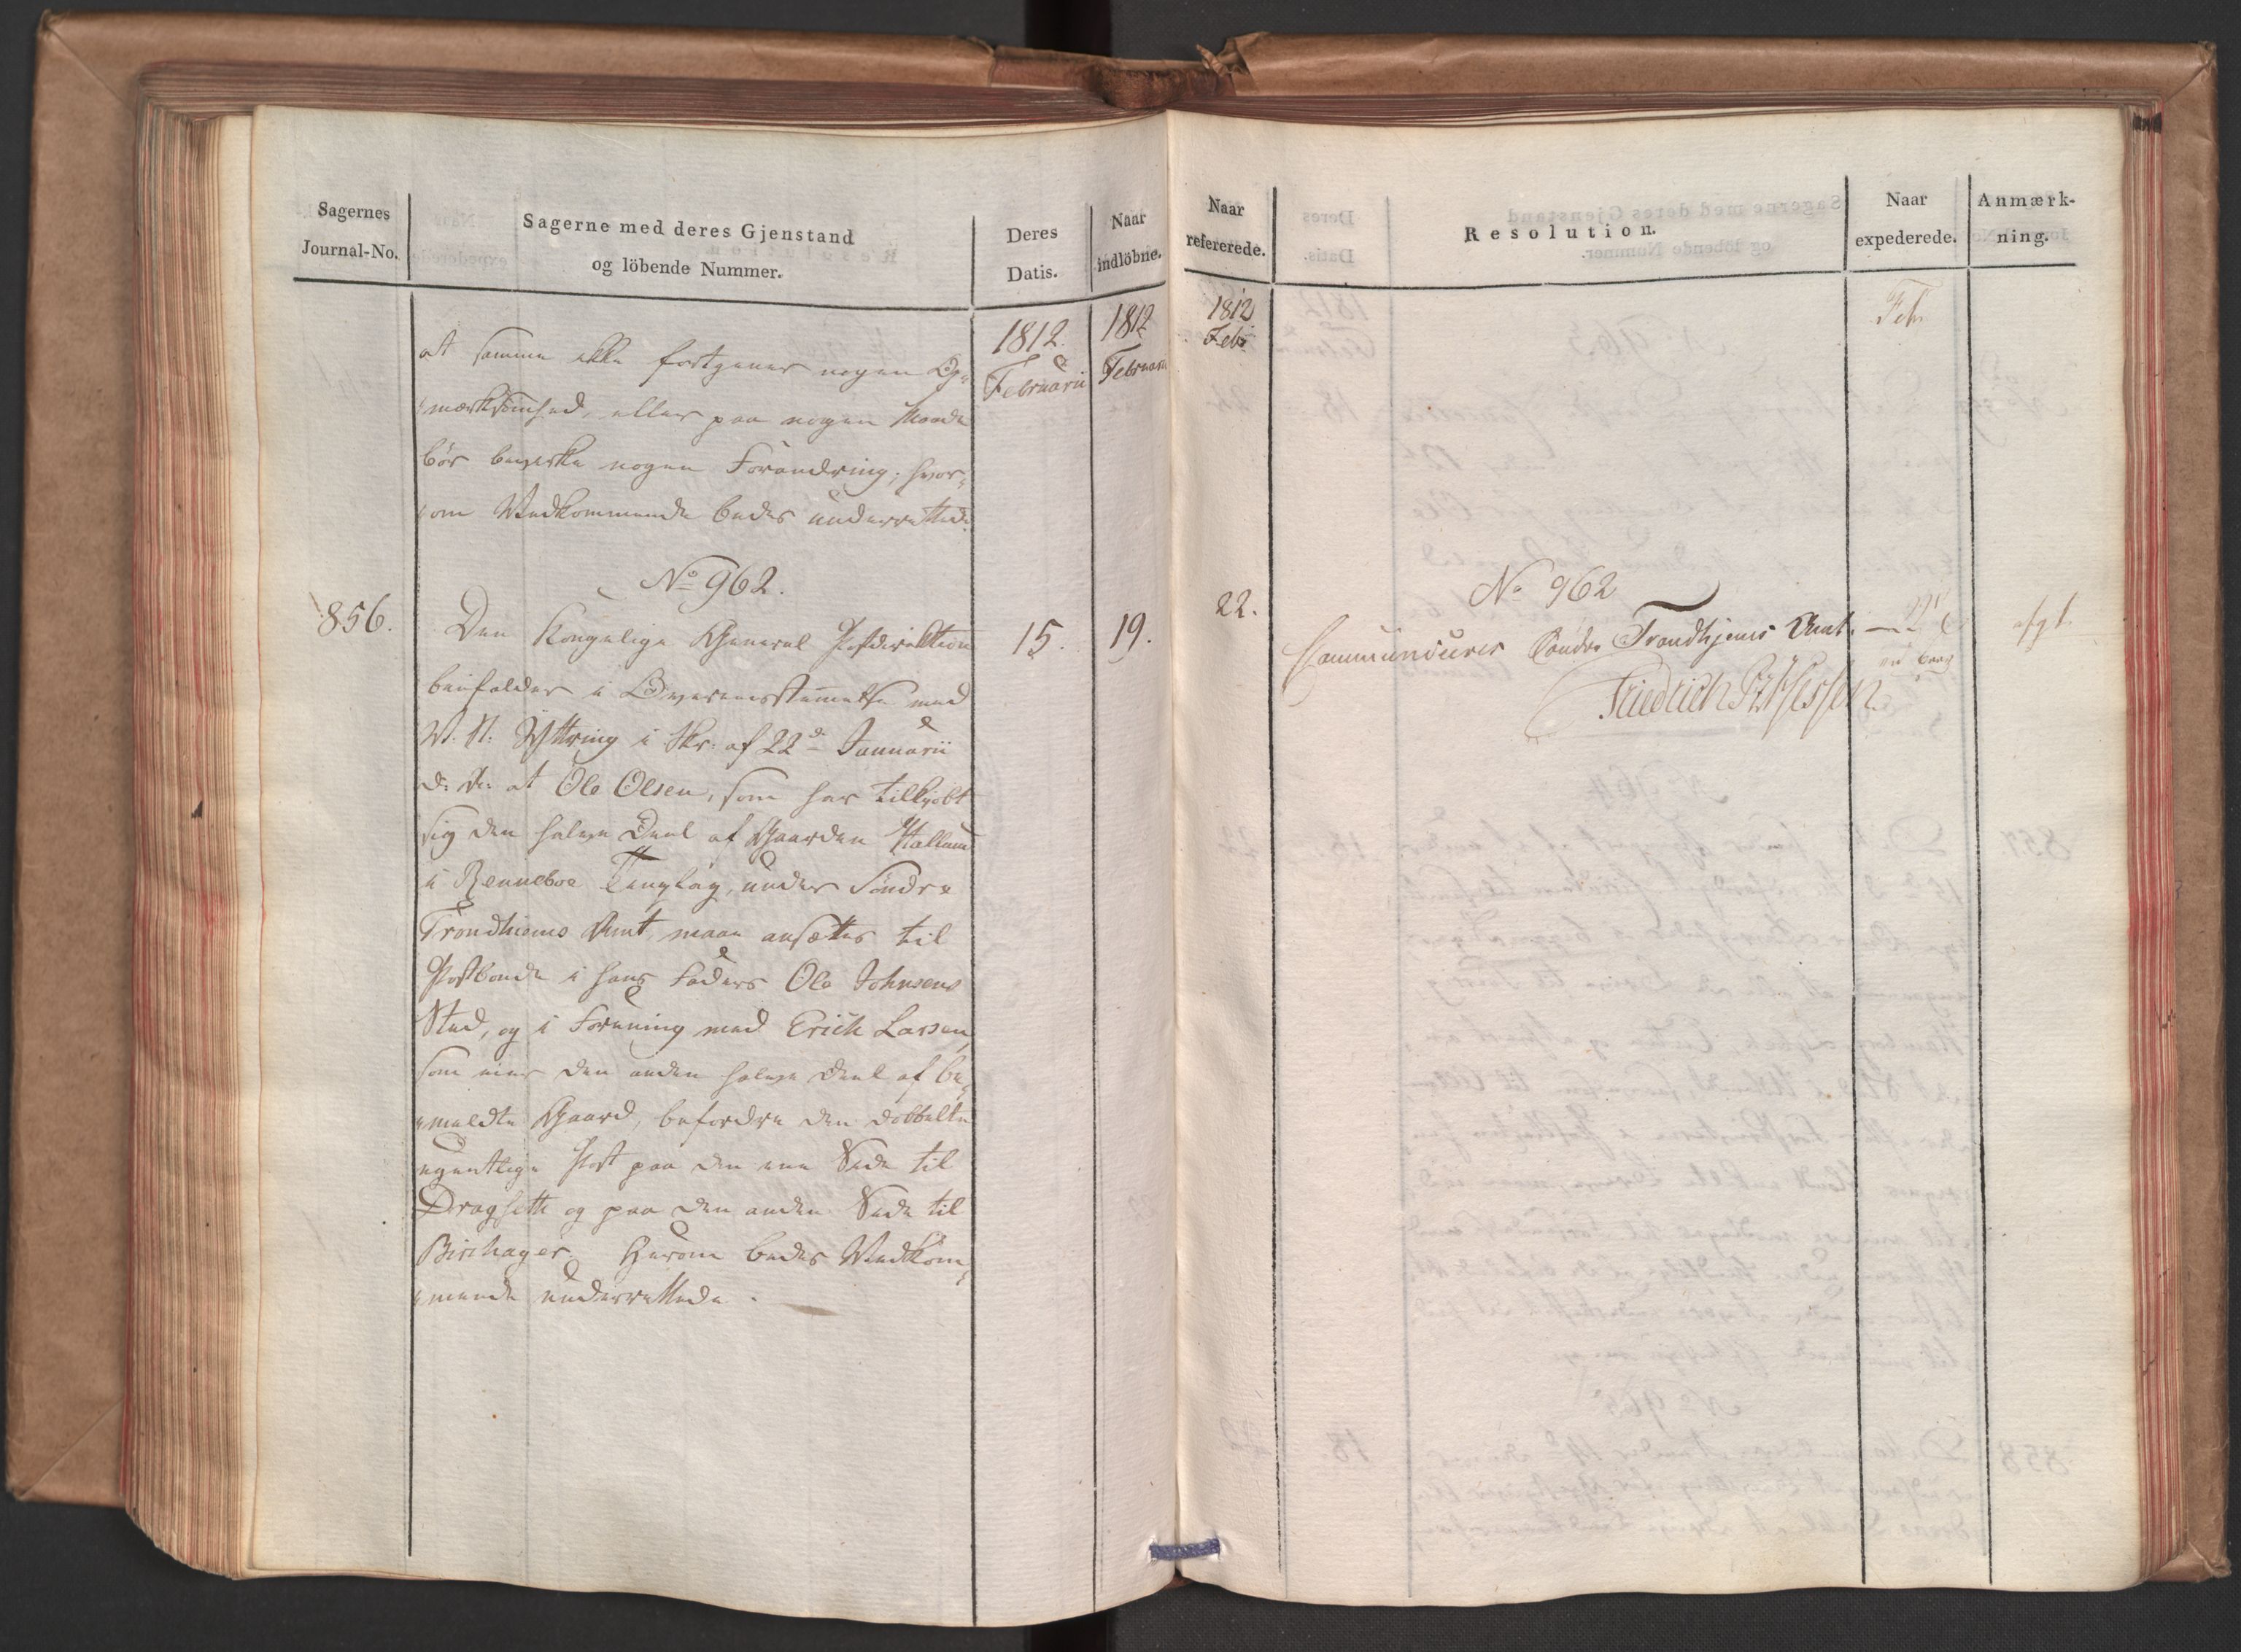 Sagernes
Journal-No.
Sagerne med deres Gjenstand
og löbende Nummer.
Deres
Datis.
Naar
indlöbne.
1812.
Februarii
1812
Februarii
at samme ikke fortjener nogen Op-
mærksomhed, eller paa nogen Maade
bör bevirke nogen Forandring; hvor-
om Vedkommende bedes underrettede.
No 962.
856.
Den Kongelige General Postdirektion
15.
19.
bifalder i Overeensstemmelse med
V. R. Yttring i Skr: af 22de Januarii
d: A: at Ole Olsen, som har tilkjöbt
sig den halve Deel af Gaarden
i Renneboe Tinglag, under Söndre
Trondhiems Amt, maae ansættes til
Postbonde i hans Faders Ole Johnsens
Sted, og i Forening med Erich Larsen,
som eier den anden halve Deel af be-
meldte Gaard, befordre den dobbelte
egentlige Post paa den ene Side til
Dragseth og paa den anden Side til
Birchager. Herom bedes Vedkom-
mende underrettede.
Naar
refererede.
Resolution.
Naar
expederede.
Anmærk-
ning.
1812
Febr
Febr
22.
No 962
Communiceres Söndre Trondhjems Amt.
Friedrich Pz Hessen
afgl.